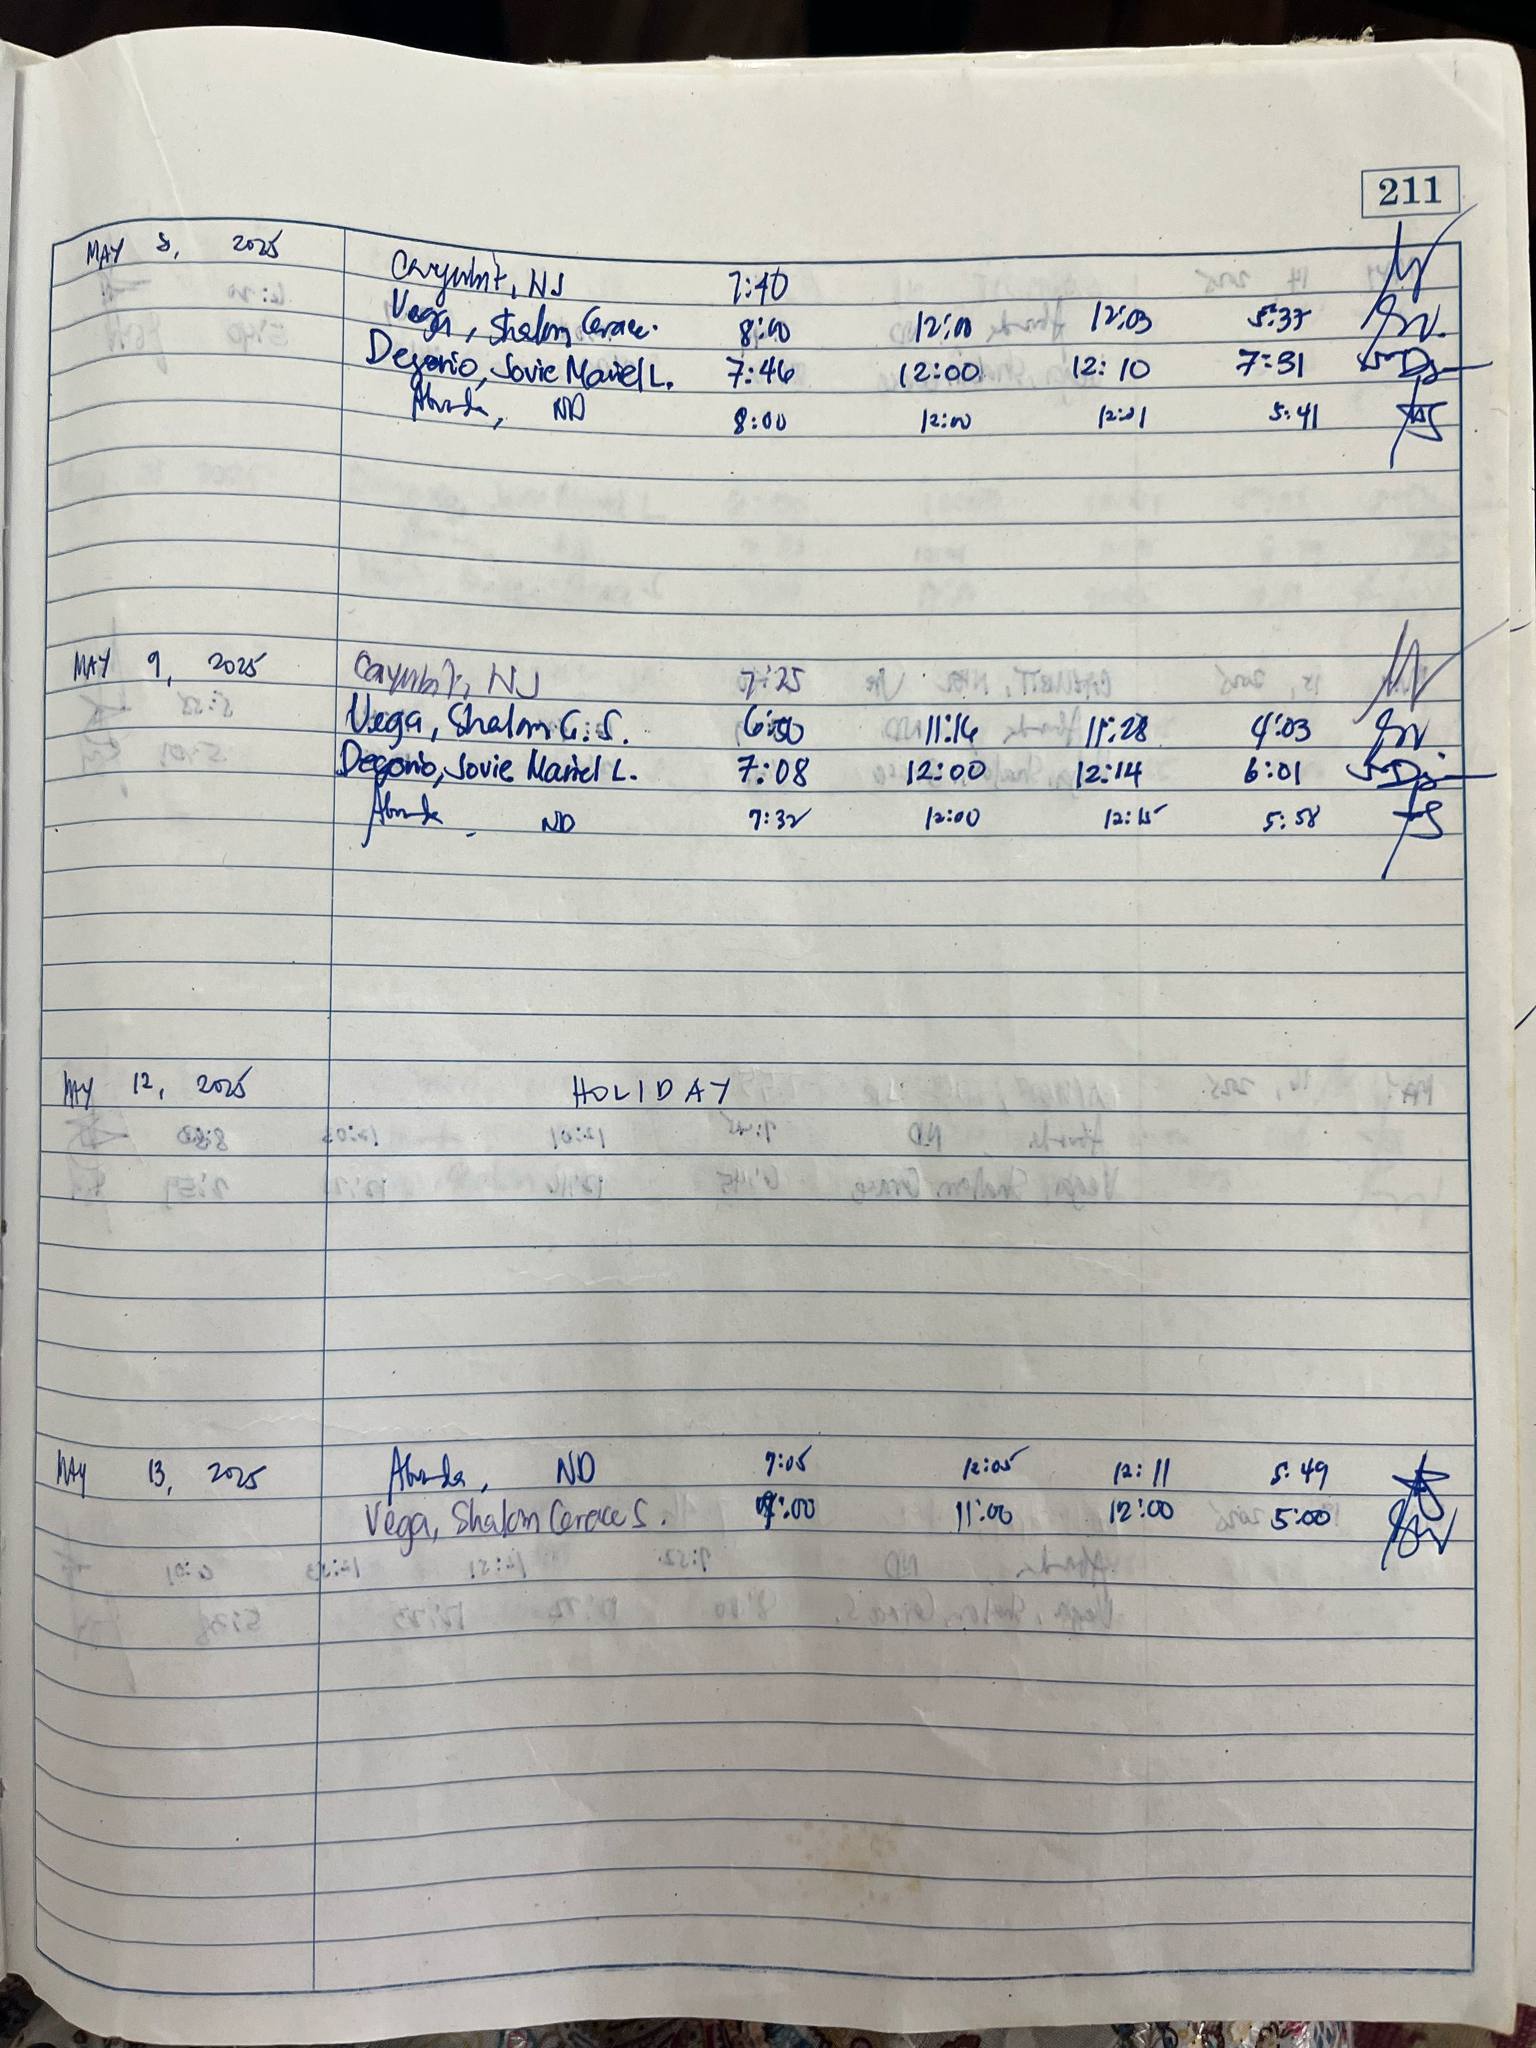 211
MAY 8, 2025
Cayubit, NJ 7:40
Vega, Shalom Grace. 8:00 12:00 12:03 5:37
Degorio, Jovie Mariel L. 7:46 12:00 12:10 7:31
Abunda, ND 8:00 12:00 12:01 5:41
MAY 9, 2025 Cayubit, NJ 7:25
Vega, Shalom G. S. 6:50 11:16 11:28 4:03
Degorio, Jovie Mariel L. 7:08 12:00 12:14 6:01
Abunda, ND 7:32 12:00 12:15 5:58
MAY 12, 2025 HOLIDAY
MAY 13, 2025 Abunda, ND 7:05 12:05 12:11 5:49
Vega, Shalom Grace S. 7:00 11:00 12:00 5:00